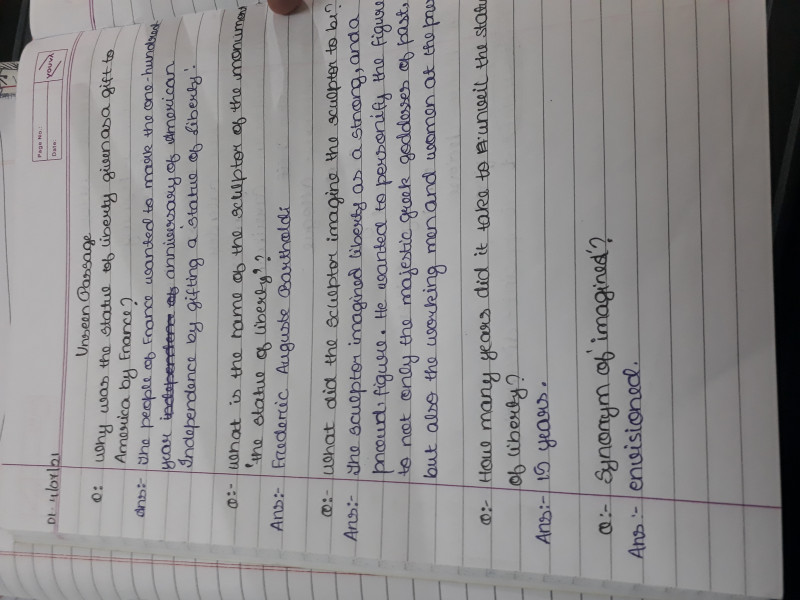 Page No.:
Date:
YOUVA
Dt- 4/04/21
Unseen Passage
Q: Why was the statue of liberty given as a gift to
America by France?
Ans:- The people of France wanted to mark the one-hundred
year independence of anniversary of American
Independence by gifting a 'statue of liberty'.
Q:- What is the name of the sculptor of the monument
'the statue of liberty'?
Ans:- Frederic Auguste Bartholdi
Q:- What did the sculptor imagine the sculptor to be?
Ans:- The sculptor imagined liberty as a strong, and a
proud, figure. He wanted to personify the figure
to not only the majestic greek goddesses of past,
but also the working men and women at the
Q:- How many years did it take to unveil the
of liberty?
Ans:- 15 years.
Q:- Synonym of 'imagined'?
Ans:- envisioned.